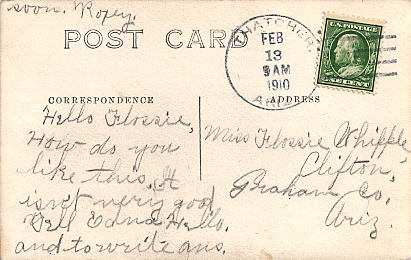 soon. Roxey.
POST CARD
THATCHER.
FEB
13
9 AM
1910
ARIZ
U.S.POSTAGE
ONE CENT
CORRESPONDENCE
ADDRESS
Hello Flossie,
How do you
like this. It
isn't very good
Tell Edna Hello.
and to write ans.
Miss Flossie Whipple,
Clifton,
Graham Co,
Ariz.